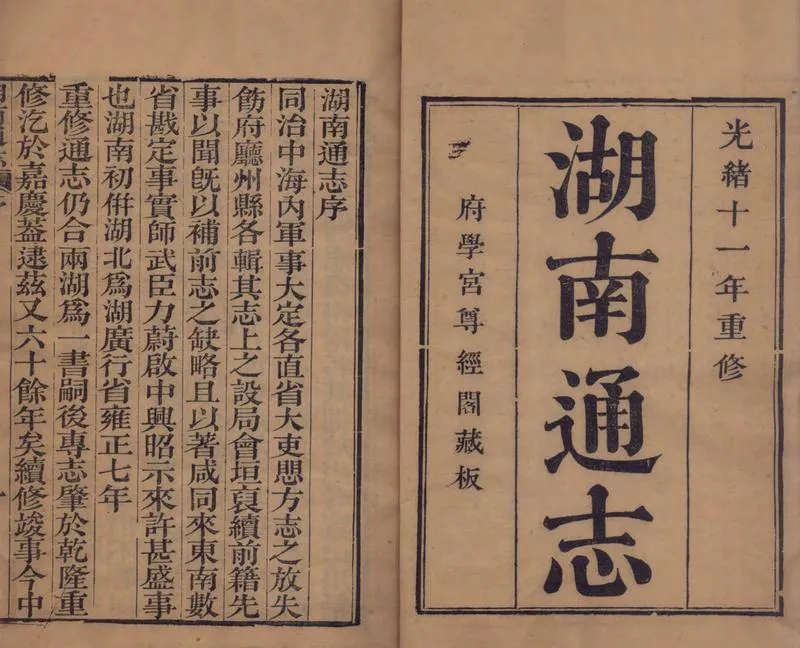 光緒十一年重修
湖南通志
府學宮尊經閣藏板
湖南通志序
同治中海內軍事大定各直省大吏思方志之放失
飭府廳州縣各輯其志上之設局會垣裒續前籍先
事以聞旣以補前志之缺略且以著咸同來東南數
省戡定事實師武臣力蔚啟中興昭示來許甚盛事
也湖南初倂湖北爲湖廣行省雍正七年
重修通志仍合兩湖爲一書嗣後專志肇於乾隆重
修汔於嘉慶葢逮茲又六十餘年矣續修竣事今中